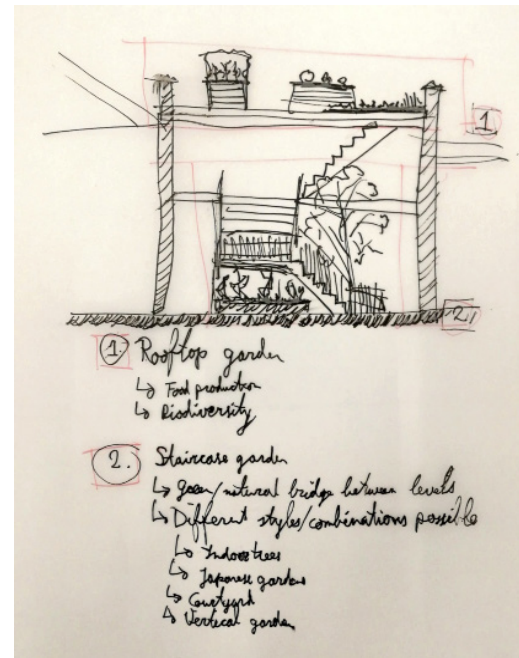 1
2.
1. Rooftop garden
↳ Food production
↳ Biodiversity
2. Staircase garden
↳ green/natural bridge between levels
↳ Different styles/combinations possible
↳ Indoor trees
↳ Japanese gardens
↳ Courtyard
↳ Vertical garden